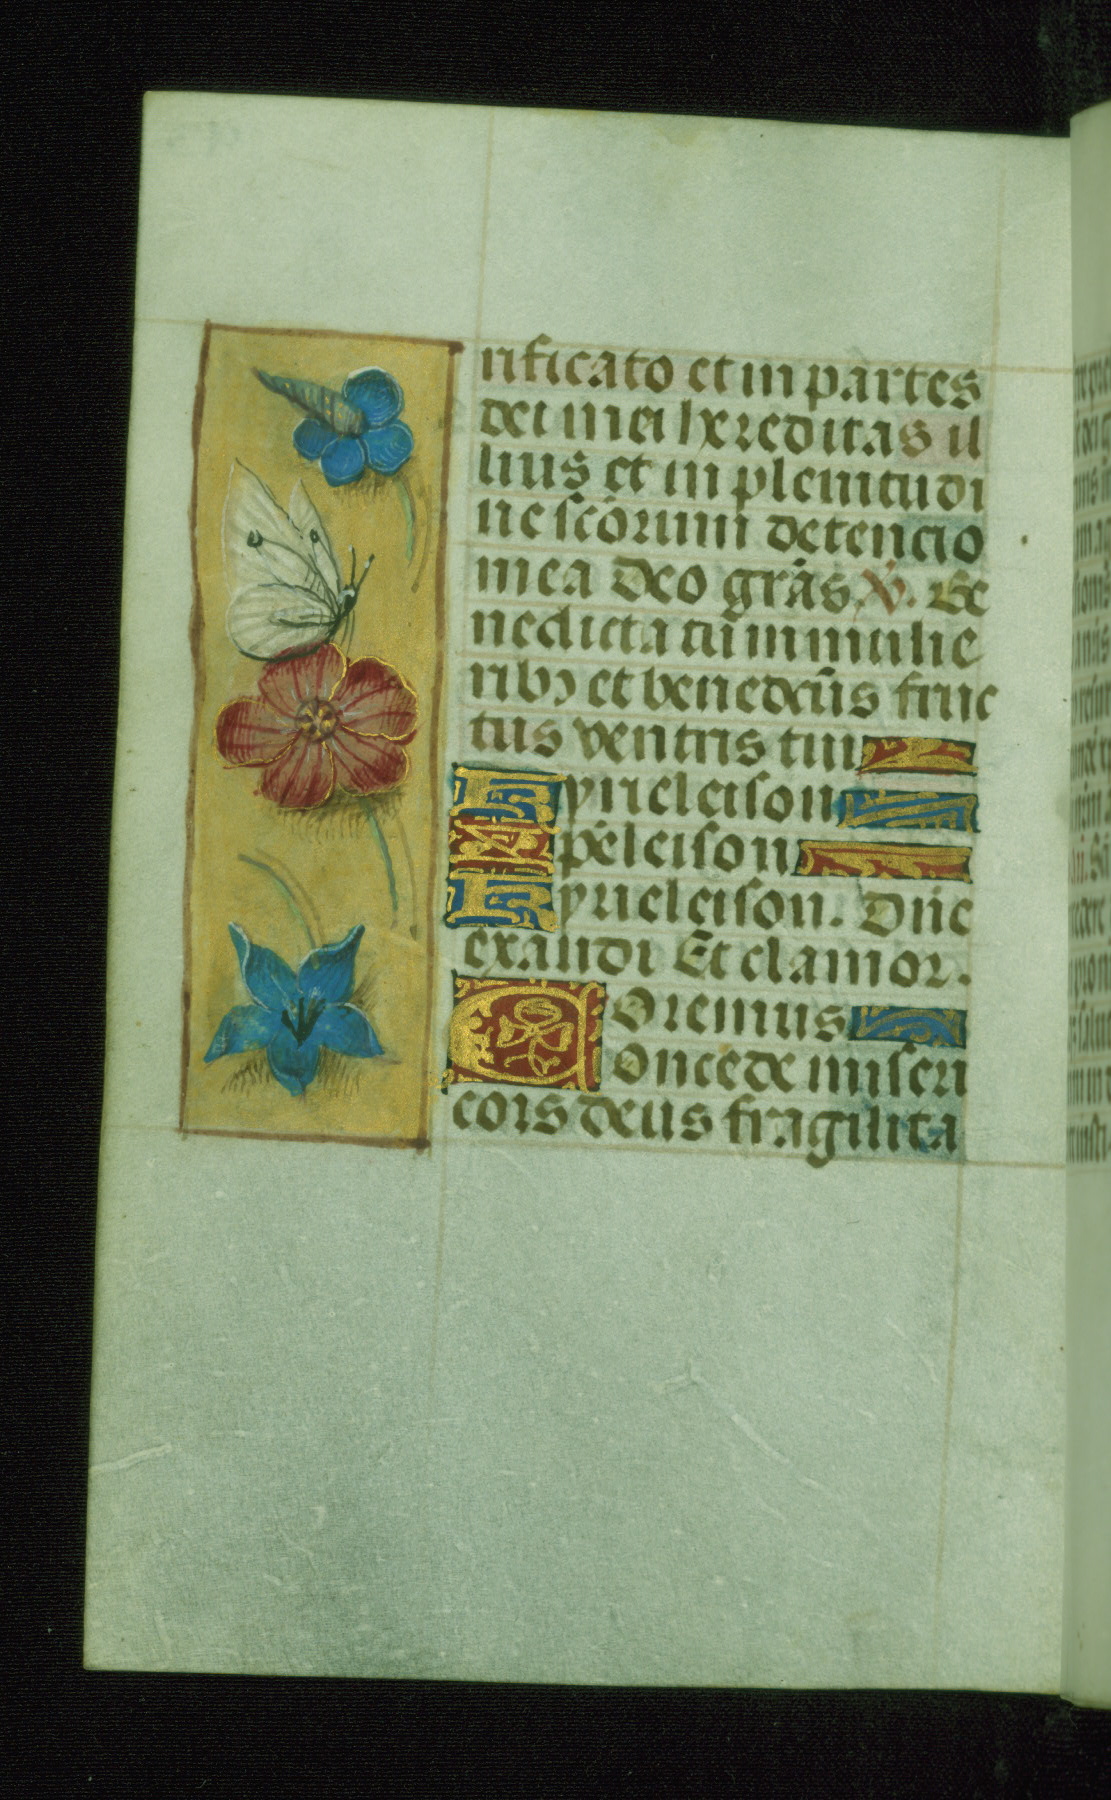 rificato et in partes
dei mei hereditas il
lius et in plenitudi
ne scõrum detencio
mea Deo grãs. V. Be
nedicta tu in mulie
ribꝫ et benedc̃us fruc
tus ventris tui
Kyrieleison
Xp̃eleison
Kyrieleison. Dñe
exaudi Et clamor.
Oremus
Concede miseri
cors deus fragilita